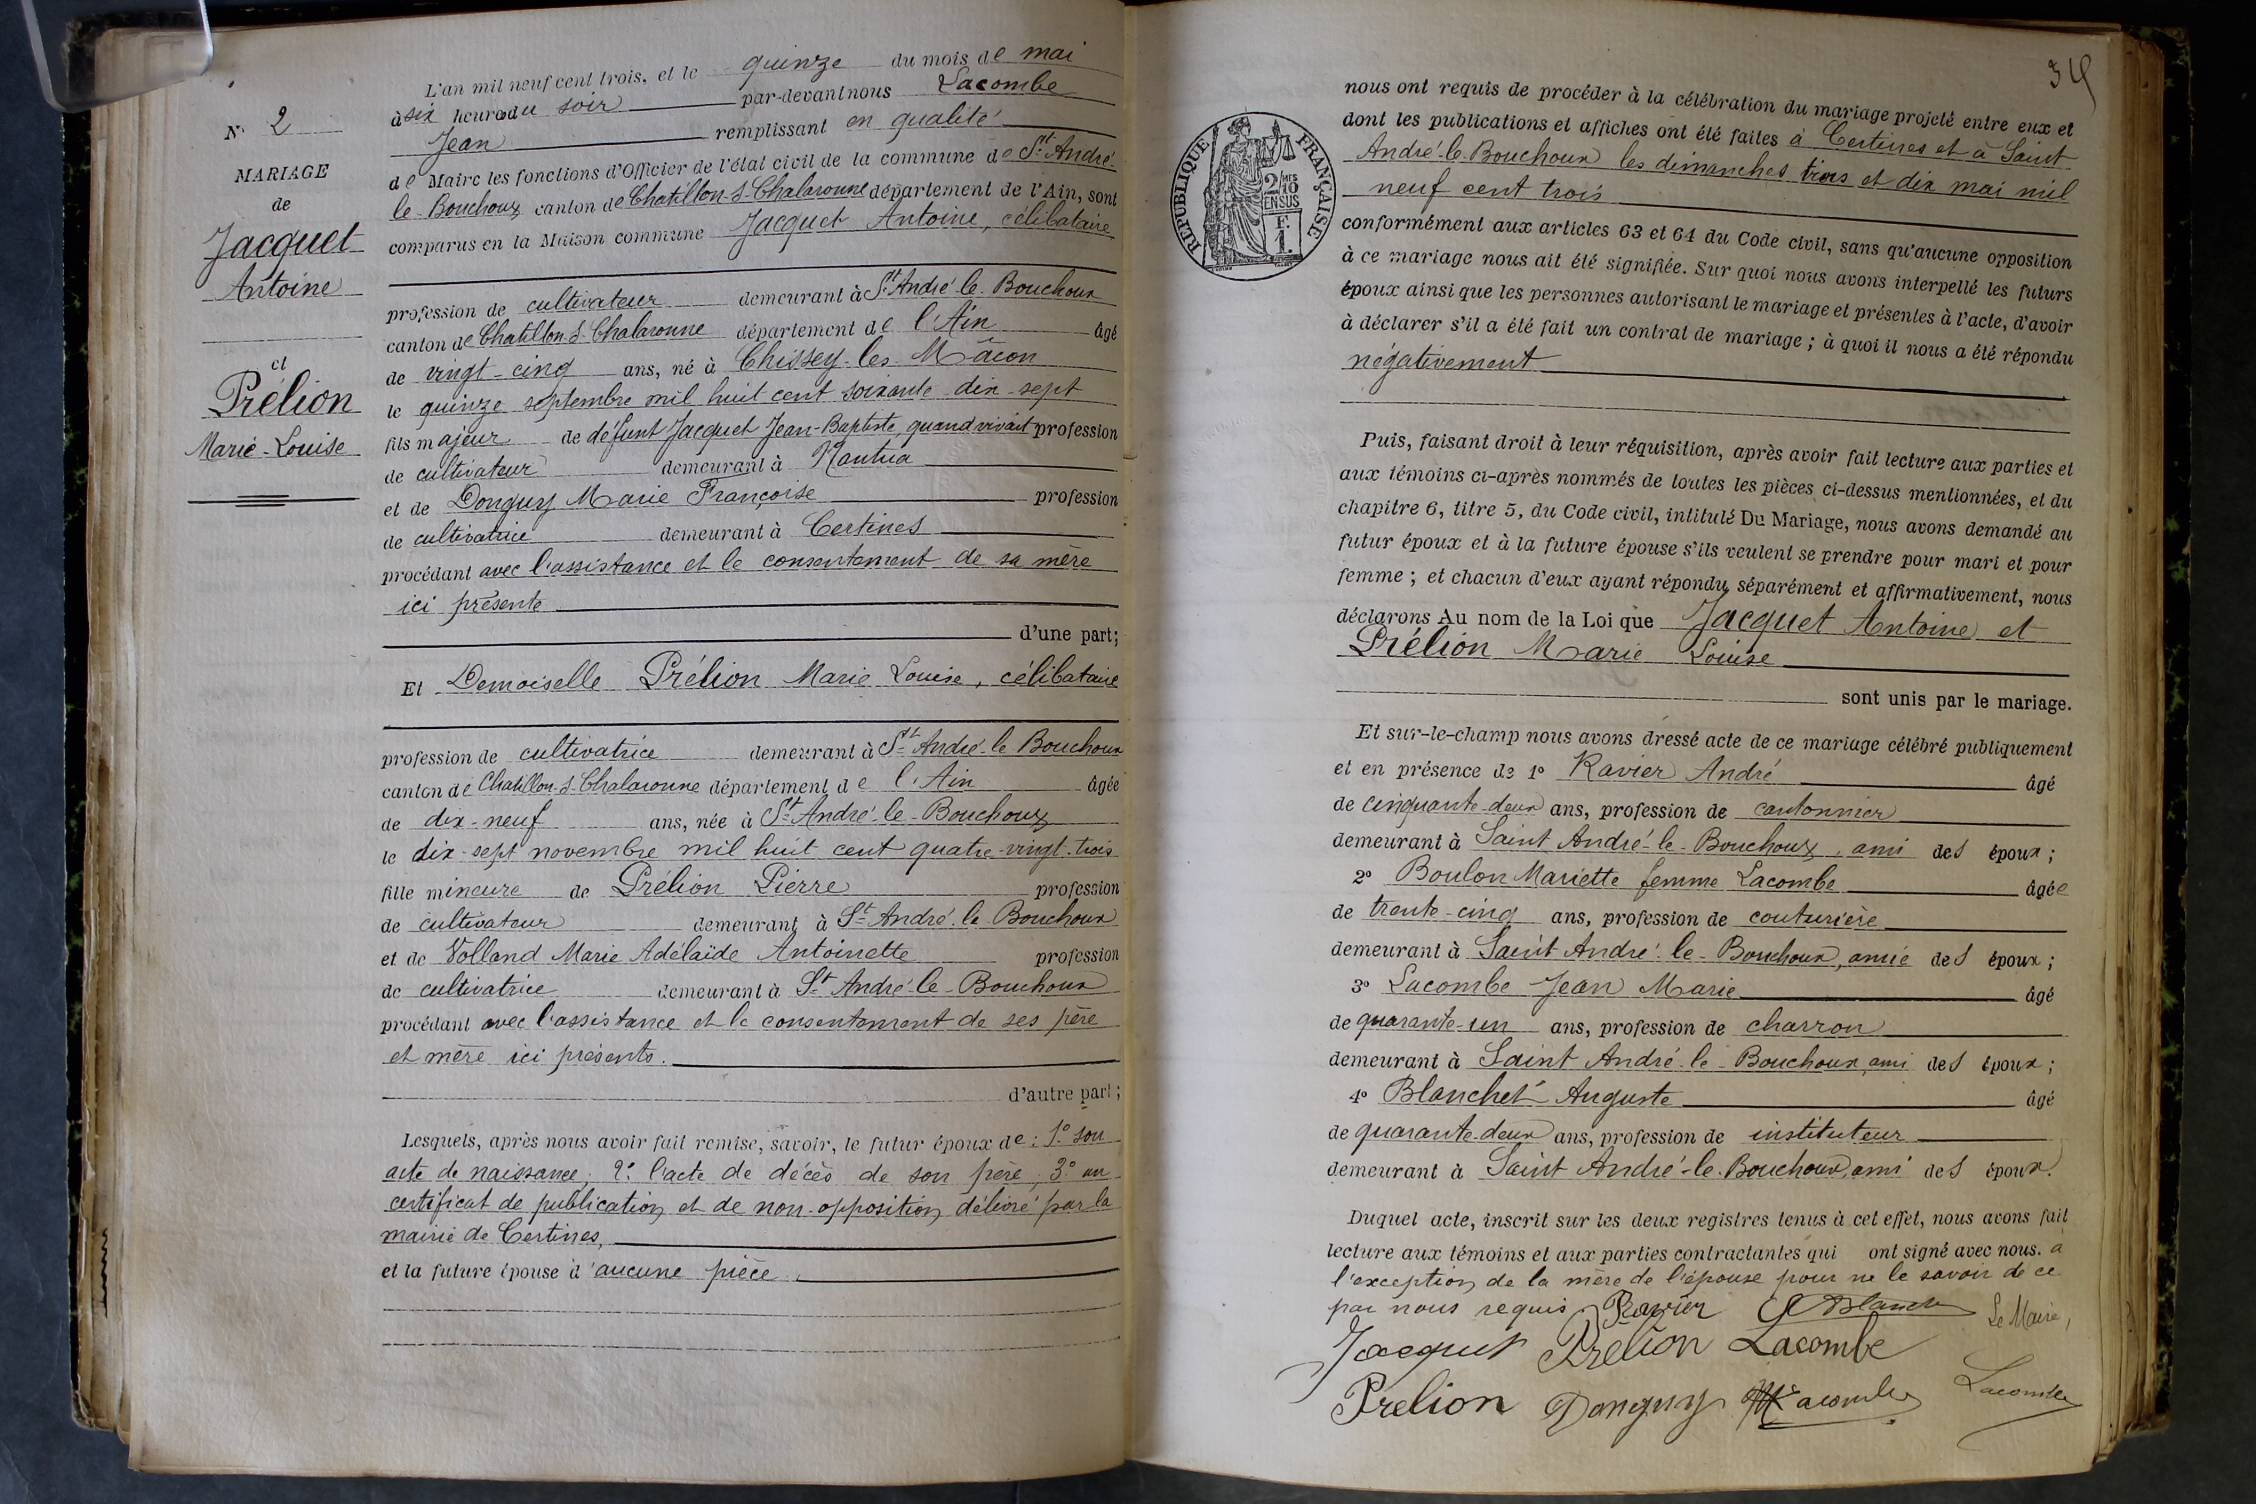 L'an mil neuf cent trois, et le quinze du mois de mai
à six heures du soir par-devant nous Lacombe
Jean remplissant en qualité
de Maire les fonctions d'Officier de l'état civil de la commune de St André
le-Bouchoux canton de Chatillon-s-Chalaronne département de l'Ain, sont
comparus en la Maison commune Jacquet Antoine, célibataire
profession de cultivateur demeurant à St André-le-Bouchoux
canton de Chatillon-s-Chalaronne département de l'Ain âgé
de vingt-cinq ans, né à Chissey-les-Mâcon
le quinze septembre mil huit cent soixante-dix-sept
fils majeur de défunt Jacquet Jean-Baptiste, quand vivait profession
de cultivateur demeurant à Nantua
et de Donguy Marie Françoise profession
de cultivatrice demeurant à Certines
procédant avec l'assistance et le consentement de sa mère
ici présente
d'une part;
Et Demoiselle Prélion Marie Louise, célibataire
profession de cultivatrice demeurant à St André-le-Bouchoux
canton de Chatillon-s-Chalaronne département de l'Ain âgée
de dix-neuf ans, née à St André-le-Bouchoux
le dix-sept novembre mil huit cent quatre-vingt-trois
fille mineure de Prélion Pierre profession
de cultivateur demeurant à St André-le-Bouchoux
et de Volland Marie Adélaïde Antoinette profession
de cultivatrice demeurant à St André-le-Bouchoux
procédant avec l'assistance et le consentement de ses père
et mère ici présents.
d'autre part;
Lesquels, après nous avoir fait remise, savoir, le futur époux de : 1° son
acte de naissance; 2° l'acte de décès de son père; 3° un
certificat de publication et de non-opposition délivré par la
mairie de Certines,
et la future épouse d'aucune pièce.
N° 2
MARIAGE
de
Jacquet
Antoine
et
Prélion
Marie-Louise
34
RÉPUBLIQUE FRANÇAISE
2/10
EN SUS
F.
1.
nous ont requis de procéder à la célébration du mariage projeté entre eux et
dont les publications et affiches ont été faites à Certines et à Saint
André-le-Bouchoux les dimanches trois et dix mai mil
neuf cent trois
conformément aux articles 63 et 64 du Code civil, sans qu'aucune opposition
à ce mariage nous ait été signifiée. Sur quoi nous avons interpellé les futurs
époux ainsi que les personnes autorisant le mariage et présentes à l'acte, d'avoir
à déclarer s'il a été fait un contrat de mariage ; à quoi il nous a été répondu
négativement
Puis, faisant droit à leur réquisition, après avoir fait lecture aux parties et
aux témoins ci-après nommés de toutes les pièces ci-dessus mentionnées, et du
chapitre 6, titre 5, du Code civil, intitulé Du Mariage, nous avons demandé au
futur époux et à la future épouse s'ils veulent se prendre pour mari et pour
femme ; et chacun d'eux ayant répondu séparément et affirmativement, nous
déclarons Au nom de la Loi que Jacquet Antoine et
Prélion Marie Louise
sont unis par le mariage.
Et sur-le-champ nous avons dressé acte de ce mariage célébré publiquement
et en présence de 1° Ravier André âgé
de cinquante-deux ans, profession de cantonnier
demeurant à Saint André-le-Bouchoux, ami des époux ;
2° Boulon Mariette femme Lacombe âgée
de trente-cinq ans, profession de couturière
demeurant à Saint André-le-Bouchoux, amie des époux ;
3° Lacombe Jean Marie âgé
de quarante-un ans, profession de charron
demeurant à Saint André-le-Bouchoux, ami des époux ;
4° Blanchet Auguste âgé
de quarante-deux ans, profession de instituteur
demeurant à Saint André-le-Bouchoux, ami des époux.
Duquel acte, inscrit sur les deux registres tenus à cet effet, nous avons fait
lecture aux témoins et aux parties contractantes qui ont signé avec nous. à
l'exception de la mère de l'épouse pour ne le savoir de ce
par nous requis. Ravier Blanchet Le Maire,
Jacquet Prelion Lacombe
Prelion Donguy Lacombe